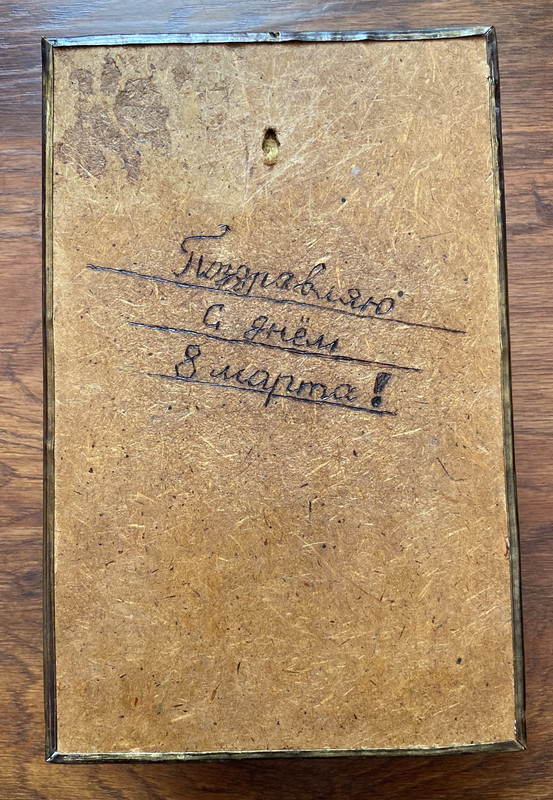 Поздравляю
С днём
8 марта!